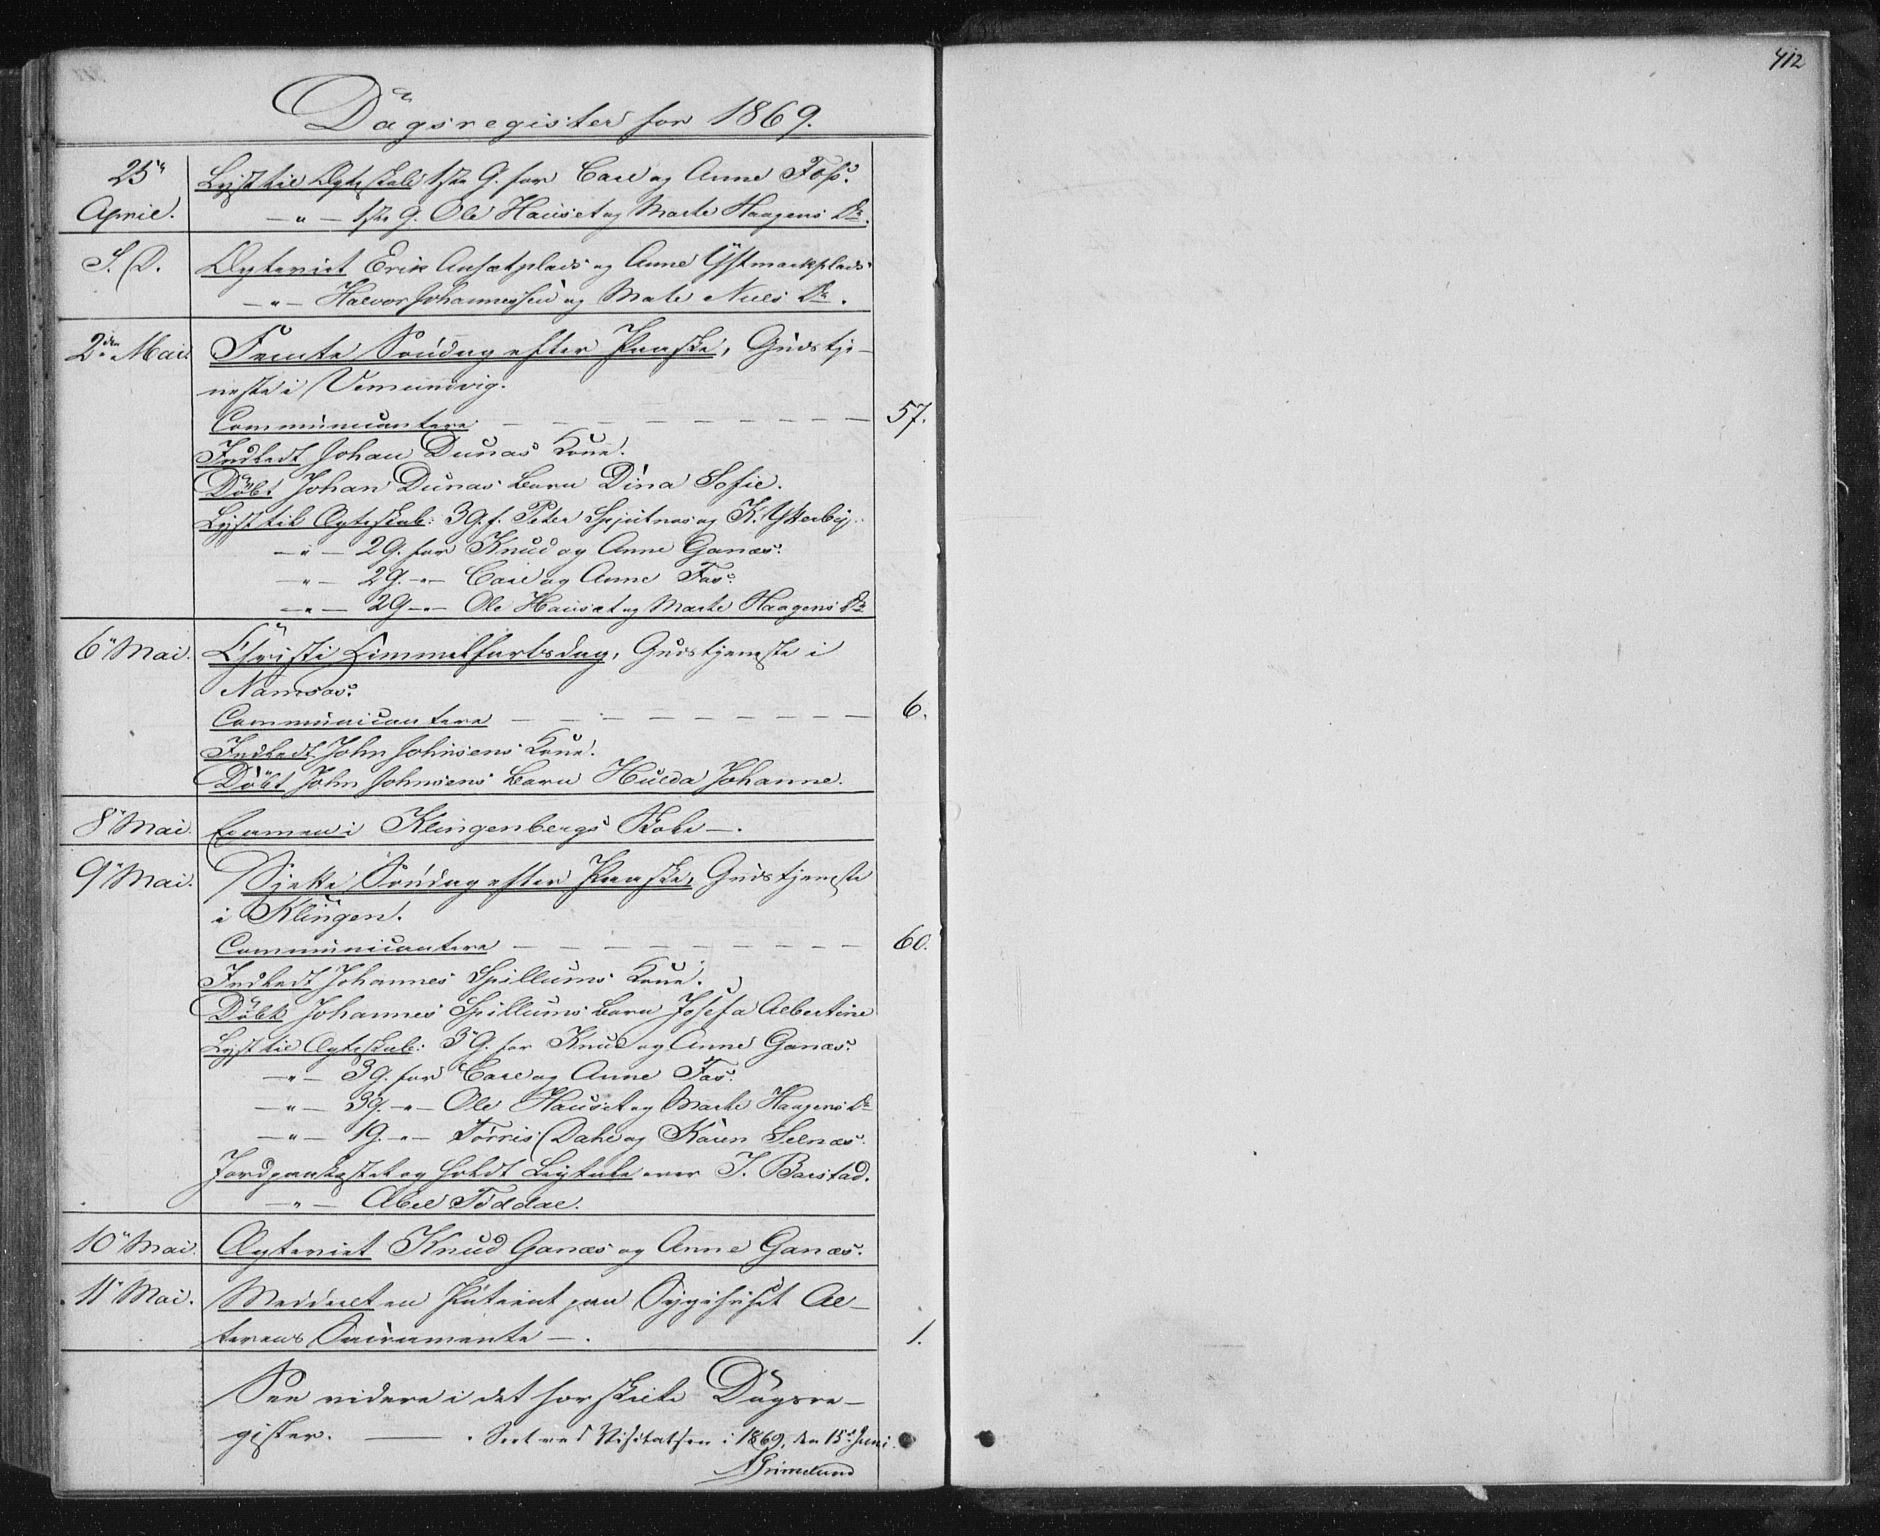 412
Dagsregister for 1869.
25de April. Lyst til Ægteskab 1ste G. for Carl og Anne Foss.
—"— 1ste G. Ole Hauset og Marte Haagens Dr.
S. D. Ægteviet Erik Ausætplads og Anne Ystmarkplads
—"— Halvor Johannessen og Mate Niels Dr.
2den Mai. Femte Søndag efter Paaske, Gudstje-
neste i Vemundvig.
Communicantere — — — 57.
Indledt Johan Dunas Kone.
Døbt Johan Dunas Barn Dina Sofie.
Lyst til Ægteskab: 3 G. f. Peter Spjutnes og K. Ytterby.
—"— 2 G. for Knud og Anne Ganæs.
—"— 2 G. —"— Carl og Anne Fos.
—"— 2 G —"— Ole Hauset og Marte Haagens Dr.
6te Mai. Christi Himmelfartsdag, Gudstjeneste i
Namsos.
Communicantere — — — 6.
Indledt John Johnsens Kone.
Døbt John Johnsens Barn Hulda Johanne.
8de Mai. Examen i Klingenbergs Skole —.
9de Mai. Sjette Søndag efter Paaske, Gudstjeneste
i Klingen.
Communicantere — — — 60.
Indledt Johannes Spillums Kone.
Døbt Johannes Spillums Barn Josefa Albertine
Lyst til Ægteskab: 3 G. for Knud og Anne Ganæs.
—"— 3 G. for Carl og Anne Fos.
—"— 3 G. —"— Ole Hauset og Marte Haagens Dr
—"— 1 G. —"— Torris Dahl og Karen Selnæs.
Jordpaakastet og holdt Ligtale over J. Barstad.
—"— Abel Tøddal.
10de Mai. Ægteviet Knud Ganæs og Anne Ganæs.
11te Mai. Meddelt en Patient paa Sygehuset Al-
terens Sacramente —. 1.
See videre i det forskilte Dagsre-
gister. — Seet ved Visitatsen i 1869, den 15de Juni.
AGrimelund